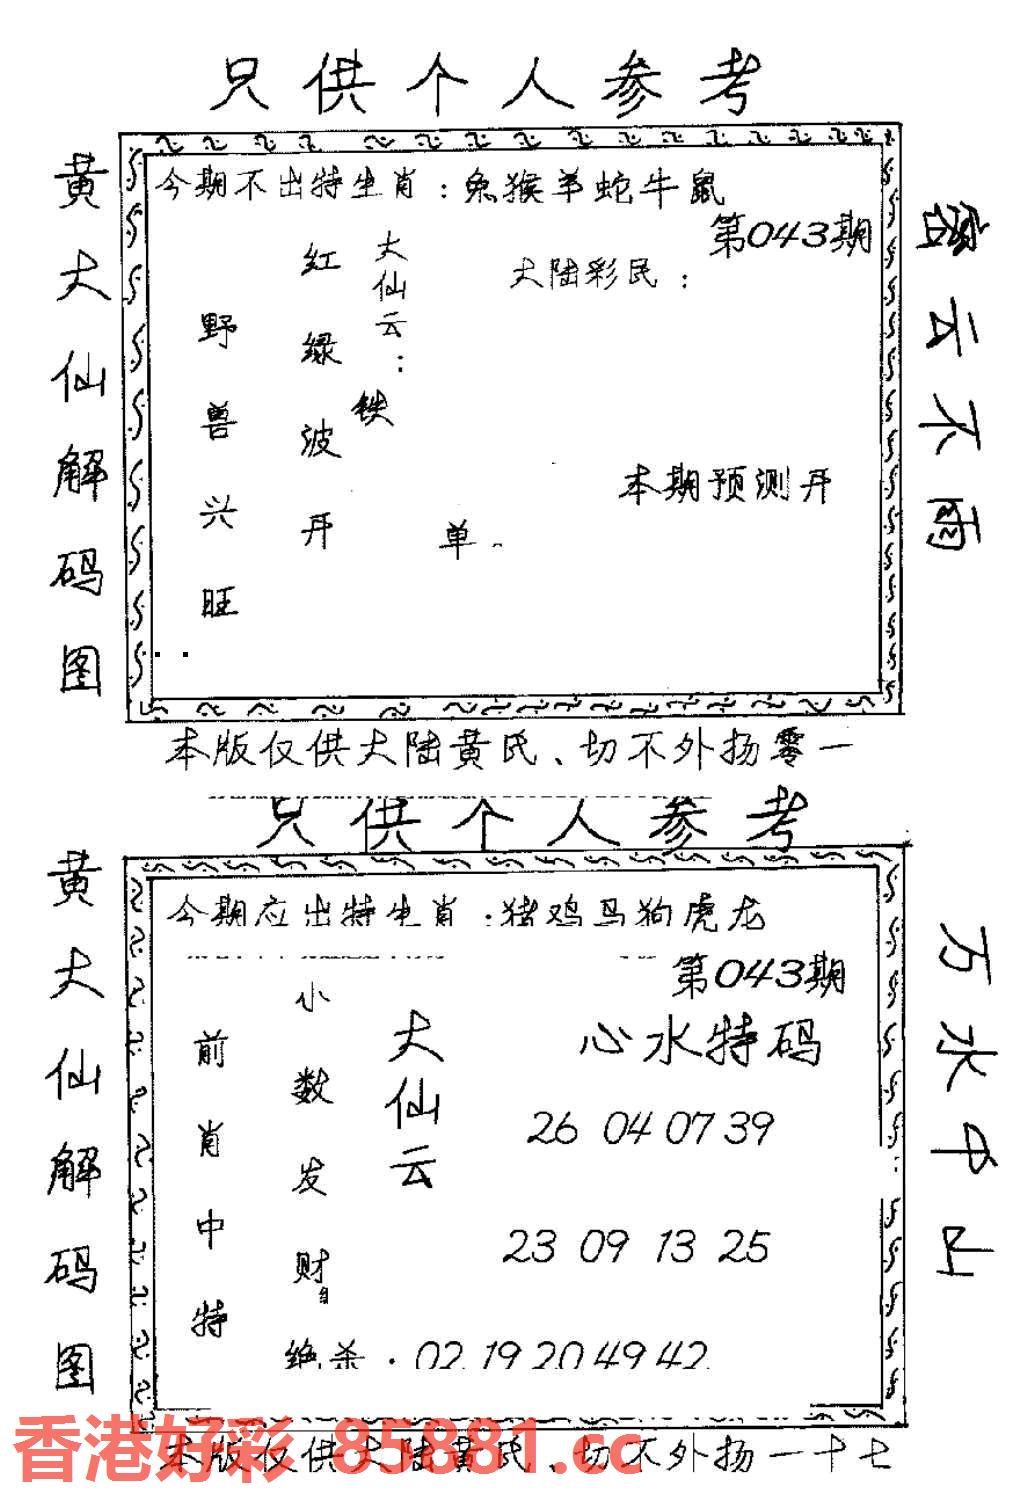 只供个人参考
黄大仙解码图
今期不出特生肖：兔猴羊蛇牛鼠
第043期
大陆彩民：
大仙云：
红绿波开
野兽兴旺
铁
单
本期预测开
密云不雨
本版仅供大陆黄氏、切不外扬零一
只供个人参考
黄大仙解码图
今期应出特生肖：猪鸡马狗虎龙
第043期
心水特码
大仙云
小数发财
前肖中特
26 04 07 39
23 09 13 25
绝杀：02 19 20 49 42
万水中山
本版仅供大陆黄氏、切不外扬一十七
香港好彩 85881.cc